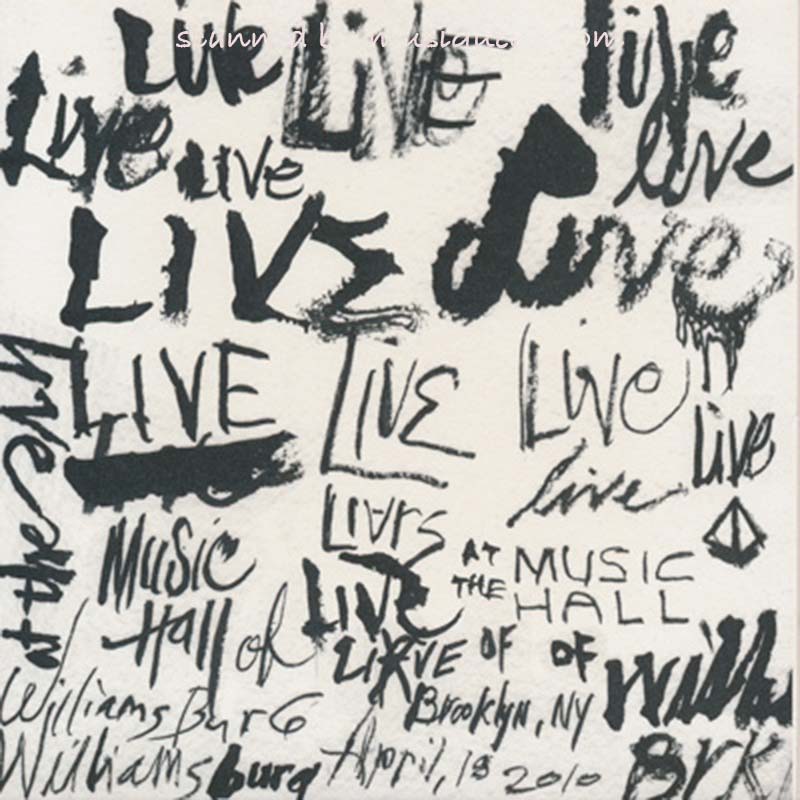 Live Live live
Live Live live
LIVE Live
LIVE LIVE Live
live at the
live live
Livrs
Music LIVE AT THE MUSIC HALL
Hall of LIRVE OF OF Will
WilliamsBurG Brooklyn, NY
Williamsburg April, 18 2010 Brk